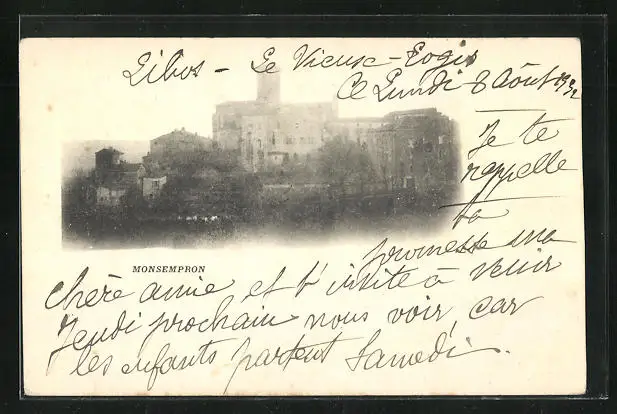 Libos - Le Vieux-Logis
Ce Lundi 8 Août
Je te
rappelle
ta
promesse ma
MONSEMPRON
chère amie et t'invite à venir
Jeudi prochain nous voir car
les enfants partent Samedi.